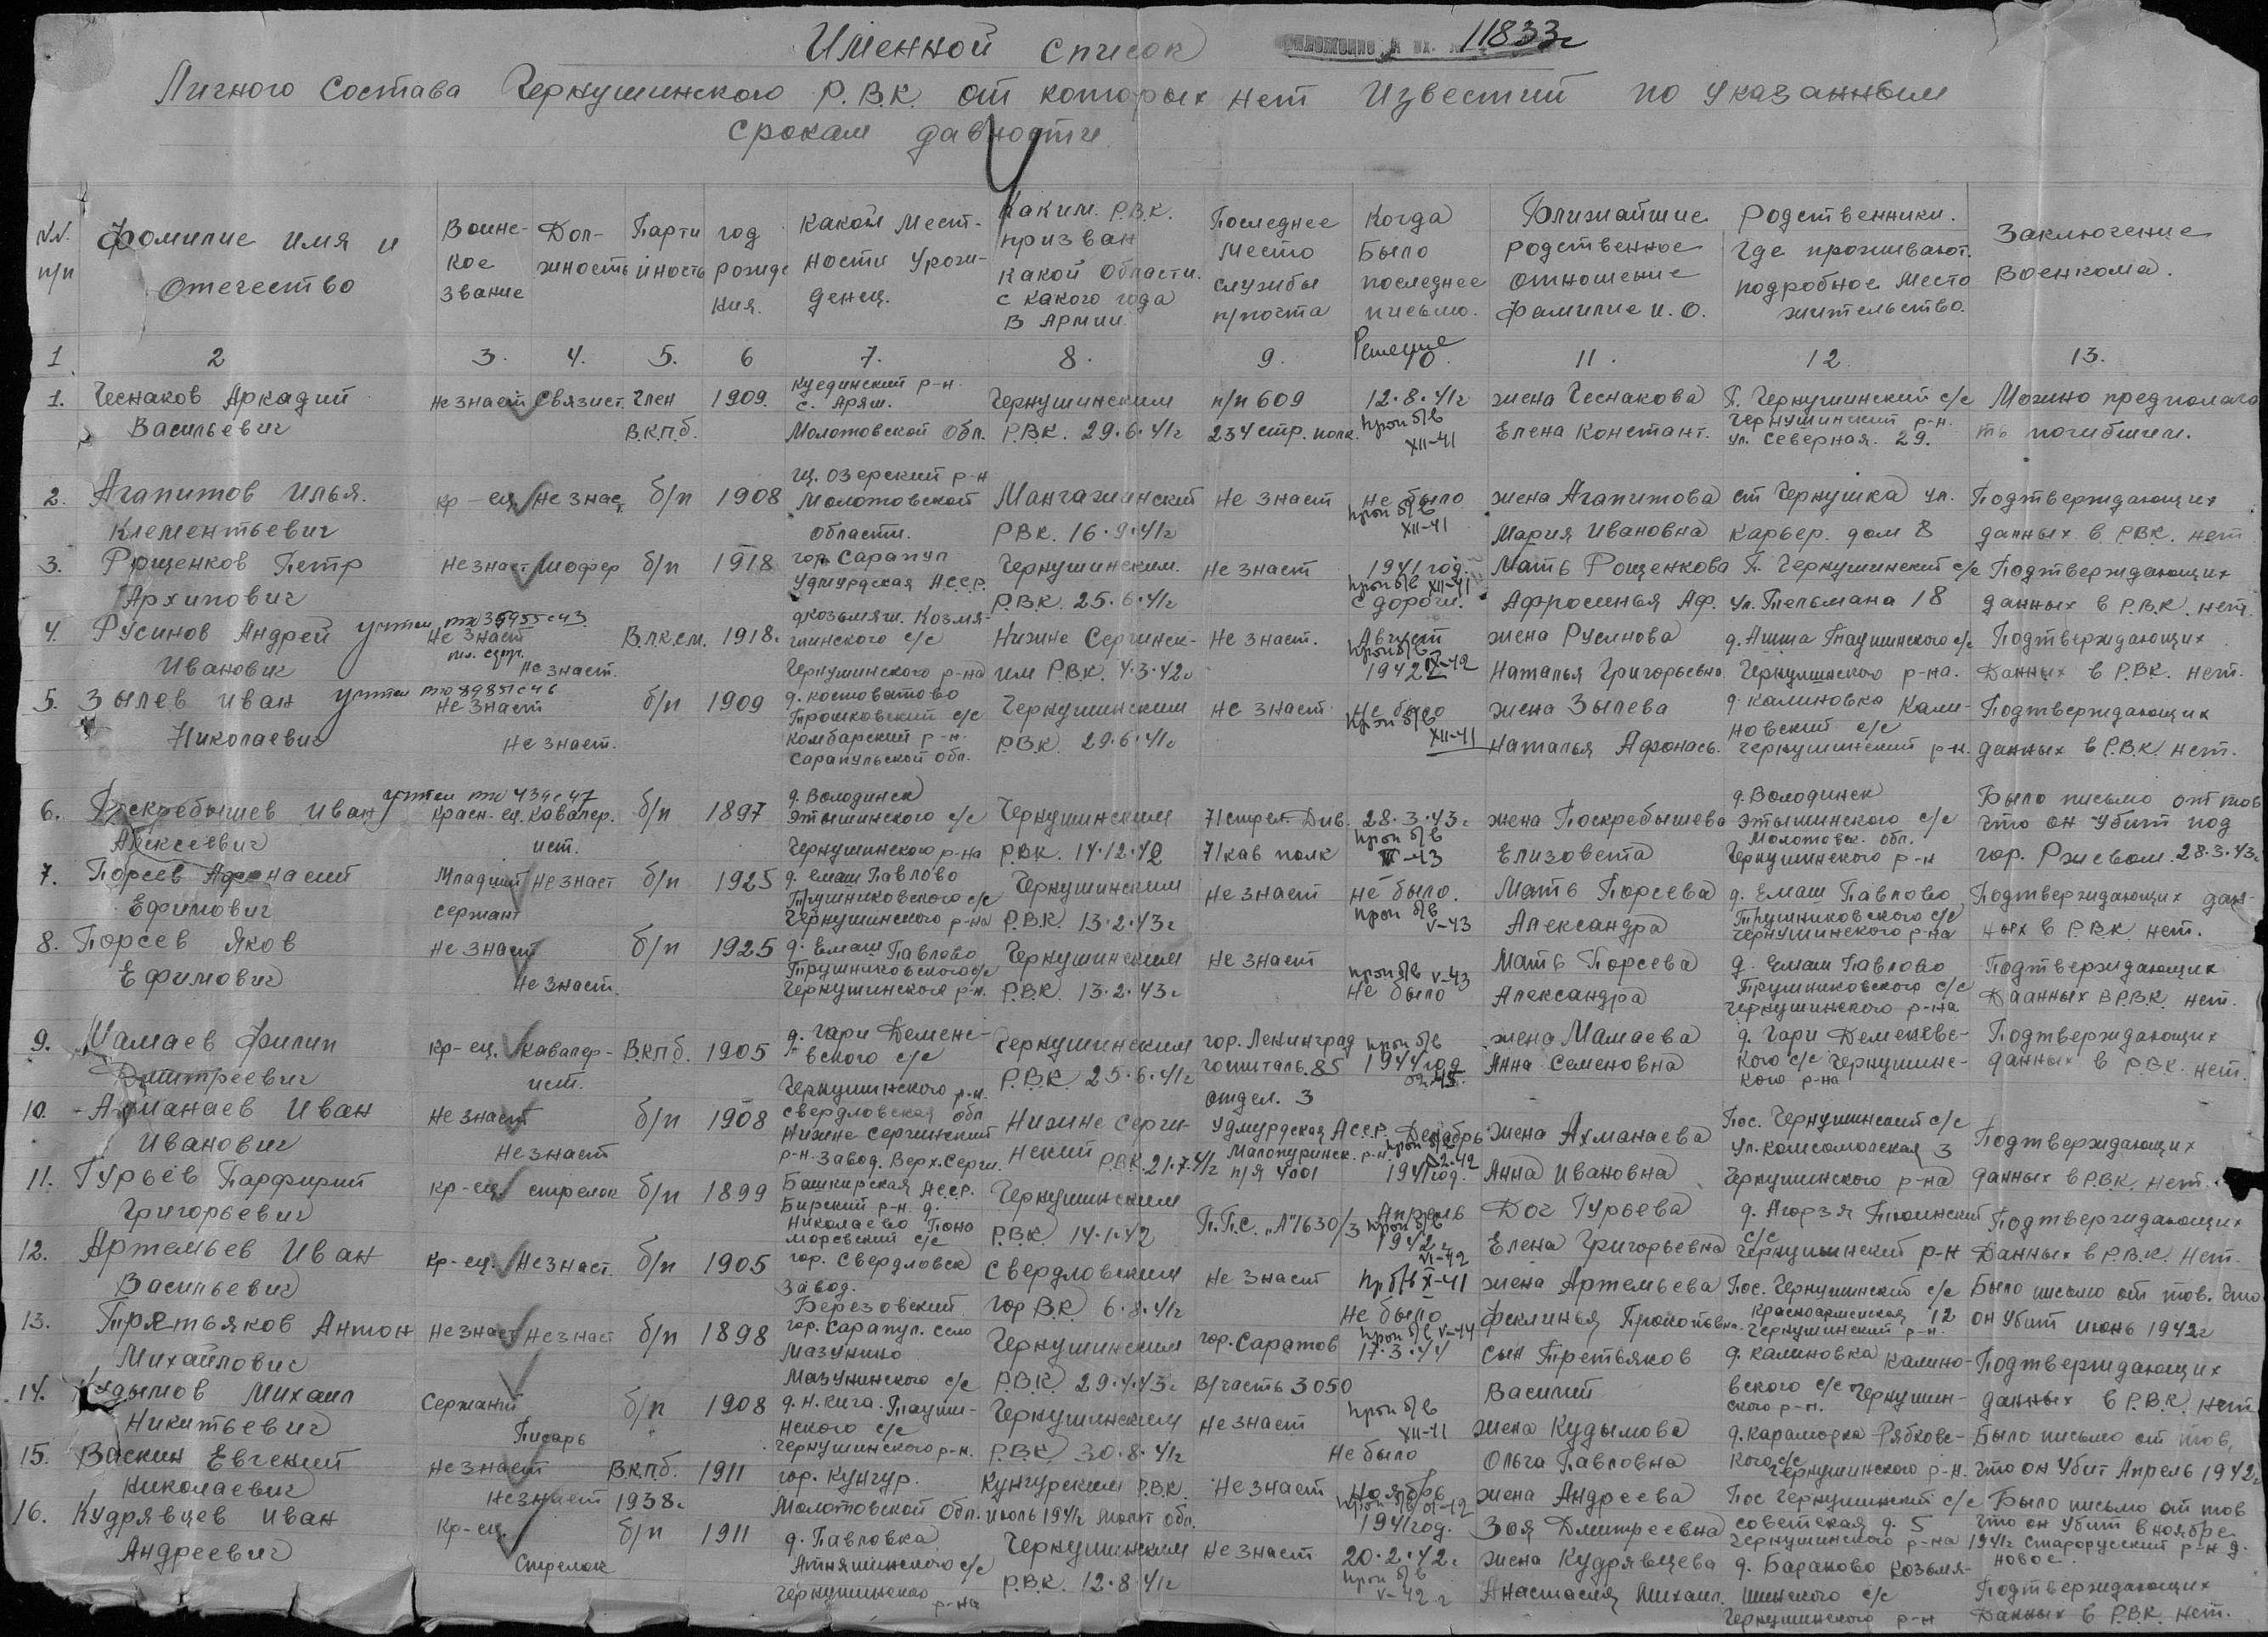 Именной список
11833с
Личного состава Чернушинского Р.В.К. от которых нет известий по указанным
срокам давности
N.N. п/п
Фомилие имя и Отечество
Воинс- кое звание
Дол- жность
Парти йность
год рожде ния.
какой мест- ности урожи- денец.
Каким Р.В.К. призван какой области. с какого года в Армии
Последнее место службы п/почта
Когда было последнее письмо.
Ближайшие родственное отношение фамилие и.о.
родственники. где проживают. подробное место жительство.
Заключение военкома.
1 2 3. 4. 5. 6 7. 8. 9. 10 11. 12. 13.
Решение
1. Чеснаков Аркадий не знает Связист. Член 1909. Куединский р-н. Чернушинским п/п 609 12.8.41г жена Чеснакова П. Чернушинский с/с Можно предполага
с. Аряш.
Васильевич В.К.П.б. Молотовской обл. Р.В.К. 29.6.41г 234 стр. полк. проп б/в XII-41 Елена Констант. Чернушинский р-н. ул. Северная. 29. ть погибшим.
2. Агапитов Илья. кр-ец не знает б/п 1908 Щ. Озерский р-н Молотовской Мангажинский Не знает не было жена Агапитова ст Чернушка ул. Подтверждающих
Клементьевич области. РВК. 16.9.41г проп б/в XII-41 Мария Ивановна Карьер. дом 8 данных в Р.В.К. нет
3. Рощенков Петр не знает шофер б/п 1918 гор Сарапул Чернушинским. не знает 1941 год. Мать Рощенкова П. Чернушинский с/с Подтверждающих
Удмурдская А.С.С.Р. проп б/в XII-41
Архипович Р.В.К. 25.6.41г с дороги. Афросинья Аф. ул. Тельмана 18 данных в Р.В.К. нет.
4. Русинов Андрей Не знает В.л.к.с.м. 1918. Козмя- шинского с/с Нижне Сергинск- Не знает. Август жена Русинова д. Ашша Таушинского с/с Подтверждающих
Иванович не знает. Чернушинского р-на им Р.В.К. 4.3.42г проп б/в 1942 Наталья Григорьевна Чернушинского р-на. Данных в Р.В.К. нет.
5. Зылев иван не знает б/п 1909 д. костоватово Чернушинским не знает Не было жена Зылева д. Калиновка Кали- Подтверждающих
Трошковский с/с
Николаевич не знает. Камбарский р-н. Р.В.К. 29.6.41г проп б/в XII-41 Наталья Афонась. новский с/с Чернушинский р-н. данных в Р.В.К. нет.
Сарапульской обл.
6. Поскребышев Иван Красн. ец. Кавалер. б/п 1897 д. Володинск Этышинского с/с Чернушинским 71 стрел. Див. 28.3.43г жена Поскребышева д. Володинск Этышинского с/с Было письмо от тов что он убит под
Алексеевич ист. Чернушинского р-на Р.В.К. 14.12.42 71 кав полк проп б/в Елизовета Молотовск. обл. Чернушинского р-н гор. Ржевом. 28.3.43г
7. Порсев Афонасий Младший Не знает б/п 1925 д. Емаш Павлово Чернушинским не знает не было. Мать Порсева д. Емаш Павлово Подтверждающих дан-
Ефимович сержант Трушниковского с/с Чернушинского р-на Р.В.К. 13.2.43г проп б/в V-43 Александра Трушниковского с/с Чернушинского р-на ных в Р.В.К. нет.
8. Порсев Яков не знает б/п 1925 д. Емаш Павлово Чернушинским Не знает Мать Порсева д. Емаш Павлово Подтверждающих
Ефимович Не знает. Трушниковского с/с Чернушинского р-н. Р.В.К. 13.2.43г проп б/в V-43 Не было Александра Трушниковского с/с Чернушинского р-на Даанных в Р.В.К. нет.
9. Мамаев Филип кр-ец. кавалер- В.К.П.б. 1905 д. Гари Деменс- вского с/с Чернушинским гор. Ленинград проп б/в жена Мамаева д. Гари Деменевс- Подтверждающих
Дмитреевич ист. Чернушинского р-н. Р.В.К 25.6.41г госпиталь. 85 отдел. 3 1944 год Анна Семеновна кого с/с Чернушинс- кого р-на данных в Р.В.К. нет.
10. Ахманаев Иван Не знает б/п 1908 Свердловская обл Нижне Серги- Удмурдская А.С.С.Р. Декабрь Жена Ахманаева Пос. Чернушинский с/с Подтверждающих
Иванович Не знает Нижне Сергинский р-н. Завод. Верх. Серги. нский Р.В.К. 21.7.41г Малопургинск. р-н п/я 4001 проп б/в 1941 год. Анна Ивановна ул. Комсомолская 3 Чернушинского р-на данных в Р.В.К. нет.
11. Гурьев Парфирий кр-ец стрелок б/п 1899 Башкирская А.С.С.Р. Чернушинским П.П.С. „А" 1630/3 Апрель Доч Гурьева д. Агорзя Тюинский с/с Подтверждающих
Григорьевич Бирский р-н. д. Николаево Поно морёвский с/с Р.В.К. 14.1.42 проп б/в 1942г VI-42 Елена Григорьевна Чернушинский р-н Данных в Р.В.К. нет.
12. Артемьев Иван кр-ец. Не знает. б/п 1905 гор. Свердловск Свердловским не знает пр б/в X-41 жена Артемьева Пос. Чернушинский с/с Было письмо от тов. что
Васильевич завод. Березовский Гор В.К 6.8.41г Не было Феклинья Прокопьвна. Красноармейская 12 Чернушинский р-н. он убит июнь 1942г
13. Третьяков Антон не знает не знает б/п 1898 гор. Сарапул. село Мазунино Чернушинским гор. Саратов проп б/в V-44 17.3.44 сын Третьяков д. Калиновка Калино- Подтверждающих
Михайлович Мазунинского с/с Р.В.К. 29.4.43г В/часть 3050 Василий вского с/с Чернушин- ского р-н. данных в Р.В.К. нет
14. Кудымов Михаил Сержант б/п 1908 д. Н. Кига. Тауши- нского с/с Чернушинским не знает проп б/в XII-41 жена Кудымова д. Караморка Рябковс- Было письмо от тов,
Никитьевич Писарь Чернушинского р-н. Р.В.К 30.8.41г Не было Ольга Павловна кого с/с Чернушинского р-н. что он убит Апрель 1942г
15. Васкин Евгений не знает В.К.П.б. 1911 гор. Кунгур. Кунгурским Р.В.К. Не знает Ноябрь жена Андреева Пос Чернушинский с/с Было письмо от тов
Николаевич не знает 1938г Молотовской Обл. июль 1941г Молот обл. проп б/в 1941 год. Зоя Дмитреевна советская д. 5 Чернушинского р-на что он убит в ноябре 1941г Старорусский р-н д. новое.
16. Кудрявцев Иван кр-ец. б/п 1911 д. Павловка Чернушинским не знает 20.2.42г жена Кудрявцева д. Бараново Козьмя- Подтверждающих
Андреевич Стрелок Атняшинского с/с Чернушинского р-на Р.В.К. 12.8.41г проп б/в V-42г Анастасия Михаил. шинского с/с Чернушинского р-н Данных в Р.В.К. нет.